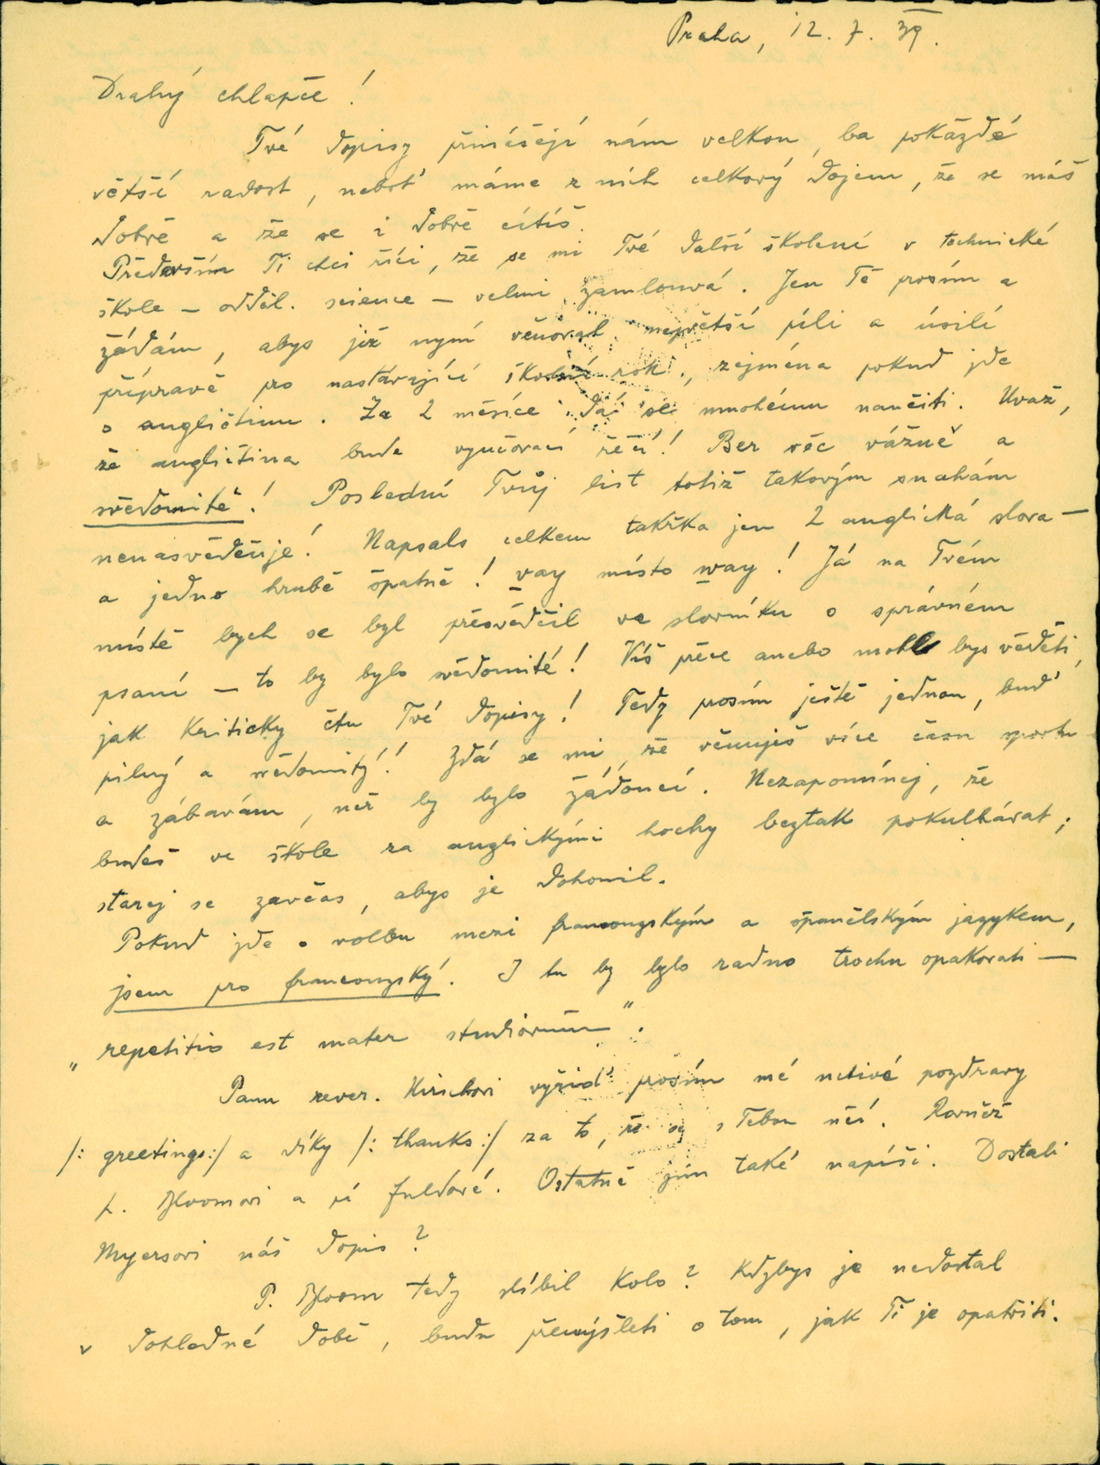 Praha, 12. 7. 39.
Drahý chlapče!
Tvé dopisy přinášejí nám velkou, ba pokaždé
větší radost, neboť máme z nich celkový dojem, že se máš
dobře a že se i dobře cítíš.
Především Ti chci říci, že se mi Tvé další školení v technické
škole – odděl. science – velmi zamlouvá. Jen Tě prosím a
žádám, abys již nyní věnoval největší píli a úsilí
přípravě pro nastávající školní rok, zejména pokud jde
o angličtinu. Za 2 měsíce dá se mnohému naučiti. Uvaž,
že angličtina bude vyučovací řečí! Ber věc vážně a
svědomitě! Poslední Tvůj list totiž takovým snahám
nenasvědčuje! Napsals celkem takřka jen 2 anglická slova –
a jedno hrubě špatně! vay místo way! Já na Tvém
místě bych se byl přesvědčil ve slovníku o správném
psaní – to by bylo svědomité! Víš přece anebo mohl bys věděti,
jak kriticky čtu Tvé dopisy! Tedy prosím ještě jednou, buď
pilný a svědomitý! Zdá se mi, že věnuješ více času sportu
a zábavám, než by bylo žádoucí. Nezapomínej, že
budeš ve škole za anglickými hochy beztak pokulhávat;
starej se zavčas, abys je dohonil.
Pokud jde o volbu mezi francouzským a španělským jazykem,
jsem pro francouzský. I tu by bylo radno trochu opakovati –
„repetitio est mater studiorum".
Panu rever. vyřiď prosím mé uctivé pozdravy
/: greetings:/ a díky /: thanks:/ za to, že se s Tebou učí. Rovněž
p. Bloomovi a pí Fuldové. Ostatně jim také napíši. Dostali
Myersovi náš dopis?
P. Bloom tedy slíbil kolo? Kdybys je nedostal
v dohledné době, budu přemýšleti o tom, jak Ti je opatřiti.